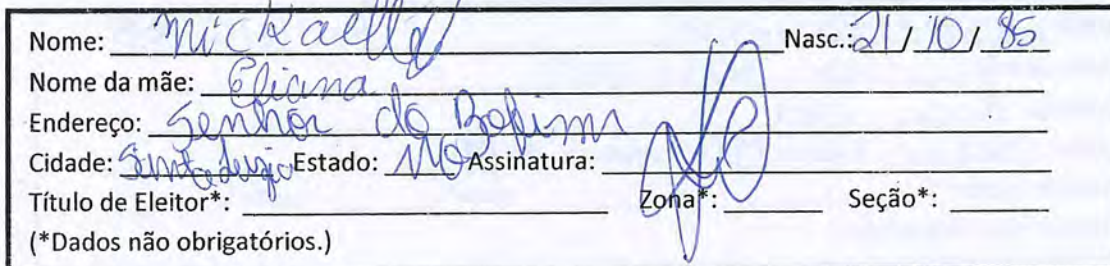 Nome: Mickaella Nasc.: 21 / 10 / 85
Nome da mãe: Eliana
Endereço: Senhor do Bofim
Cidade: Santa Luzia Estado: Assinatura:
Título de Eleitor*: Zona*: Seção*:
(*Dados não obrigatórios.)